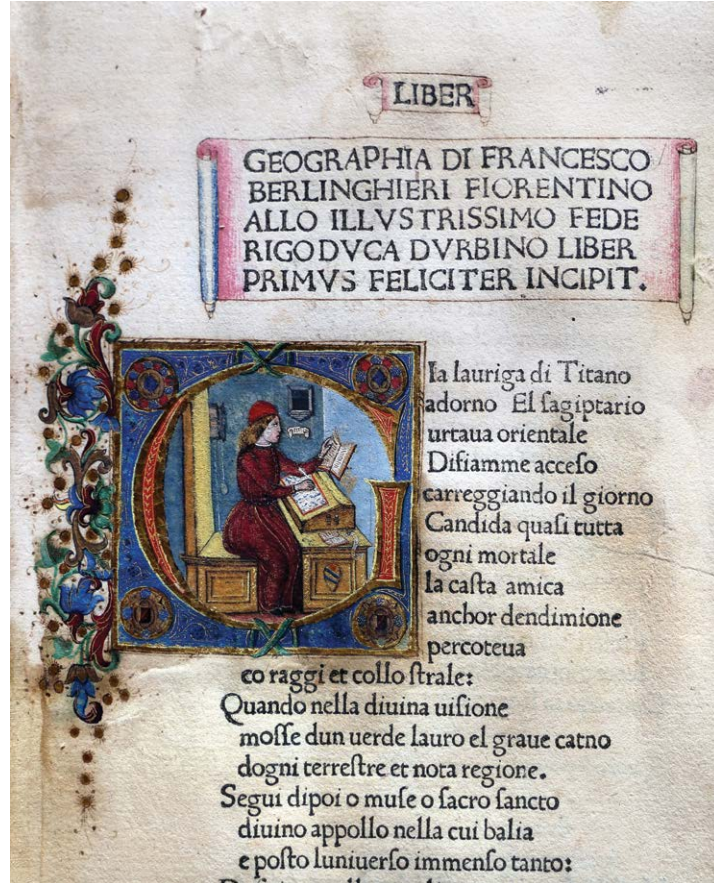 LIBER
GEOGRAPHIA DI FRANCESCO
BERLINGHIERI FIORENTINO
ALLO ILLVSTRISSIMO FEDE
RIGODVCA DVRBINO LIBER
PRIMVS FELICITER INCIPIT.
G
Ia lauriga di Titano
adorno El ſagiptario
urtaua orientale
Diſiamme acceſo
carreggiando il giorno
Candida quaſi tutta
ogni mortale
la caſta amica
anchor dendimione
percoteua
co raggi et collo ſtrale:
Quando nella diuina uiſione
moſſe dun uerde lauro el graue catno
dogni terreſtre et nota regione.
Segui dipoi o muſe o ſacro ſancto
diuino appollo nella cui balia
e poſto luniuerſo immenſo tanto: